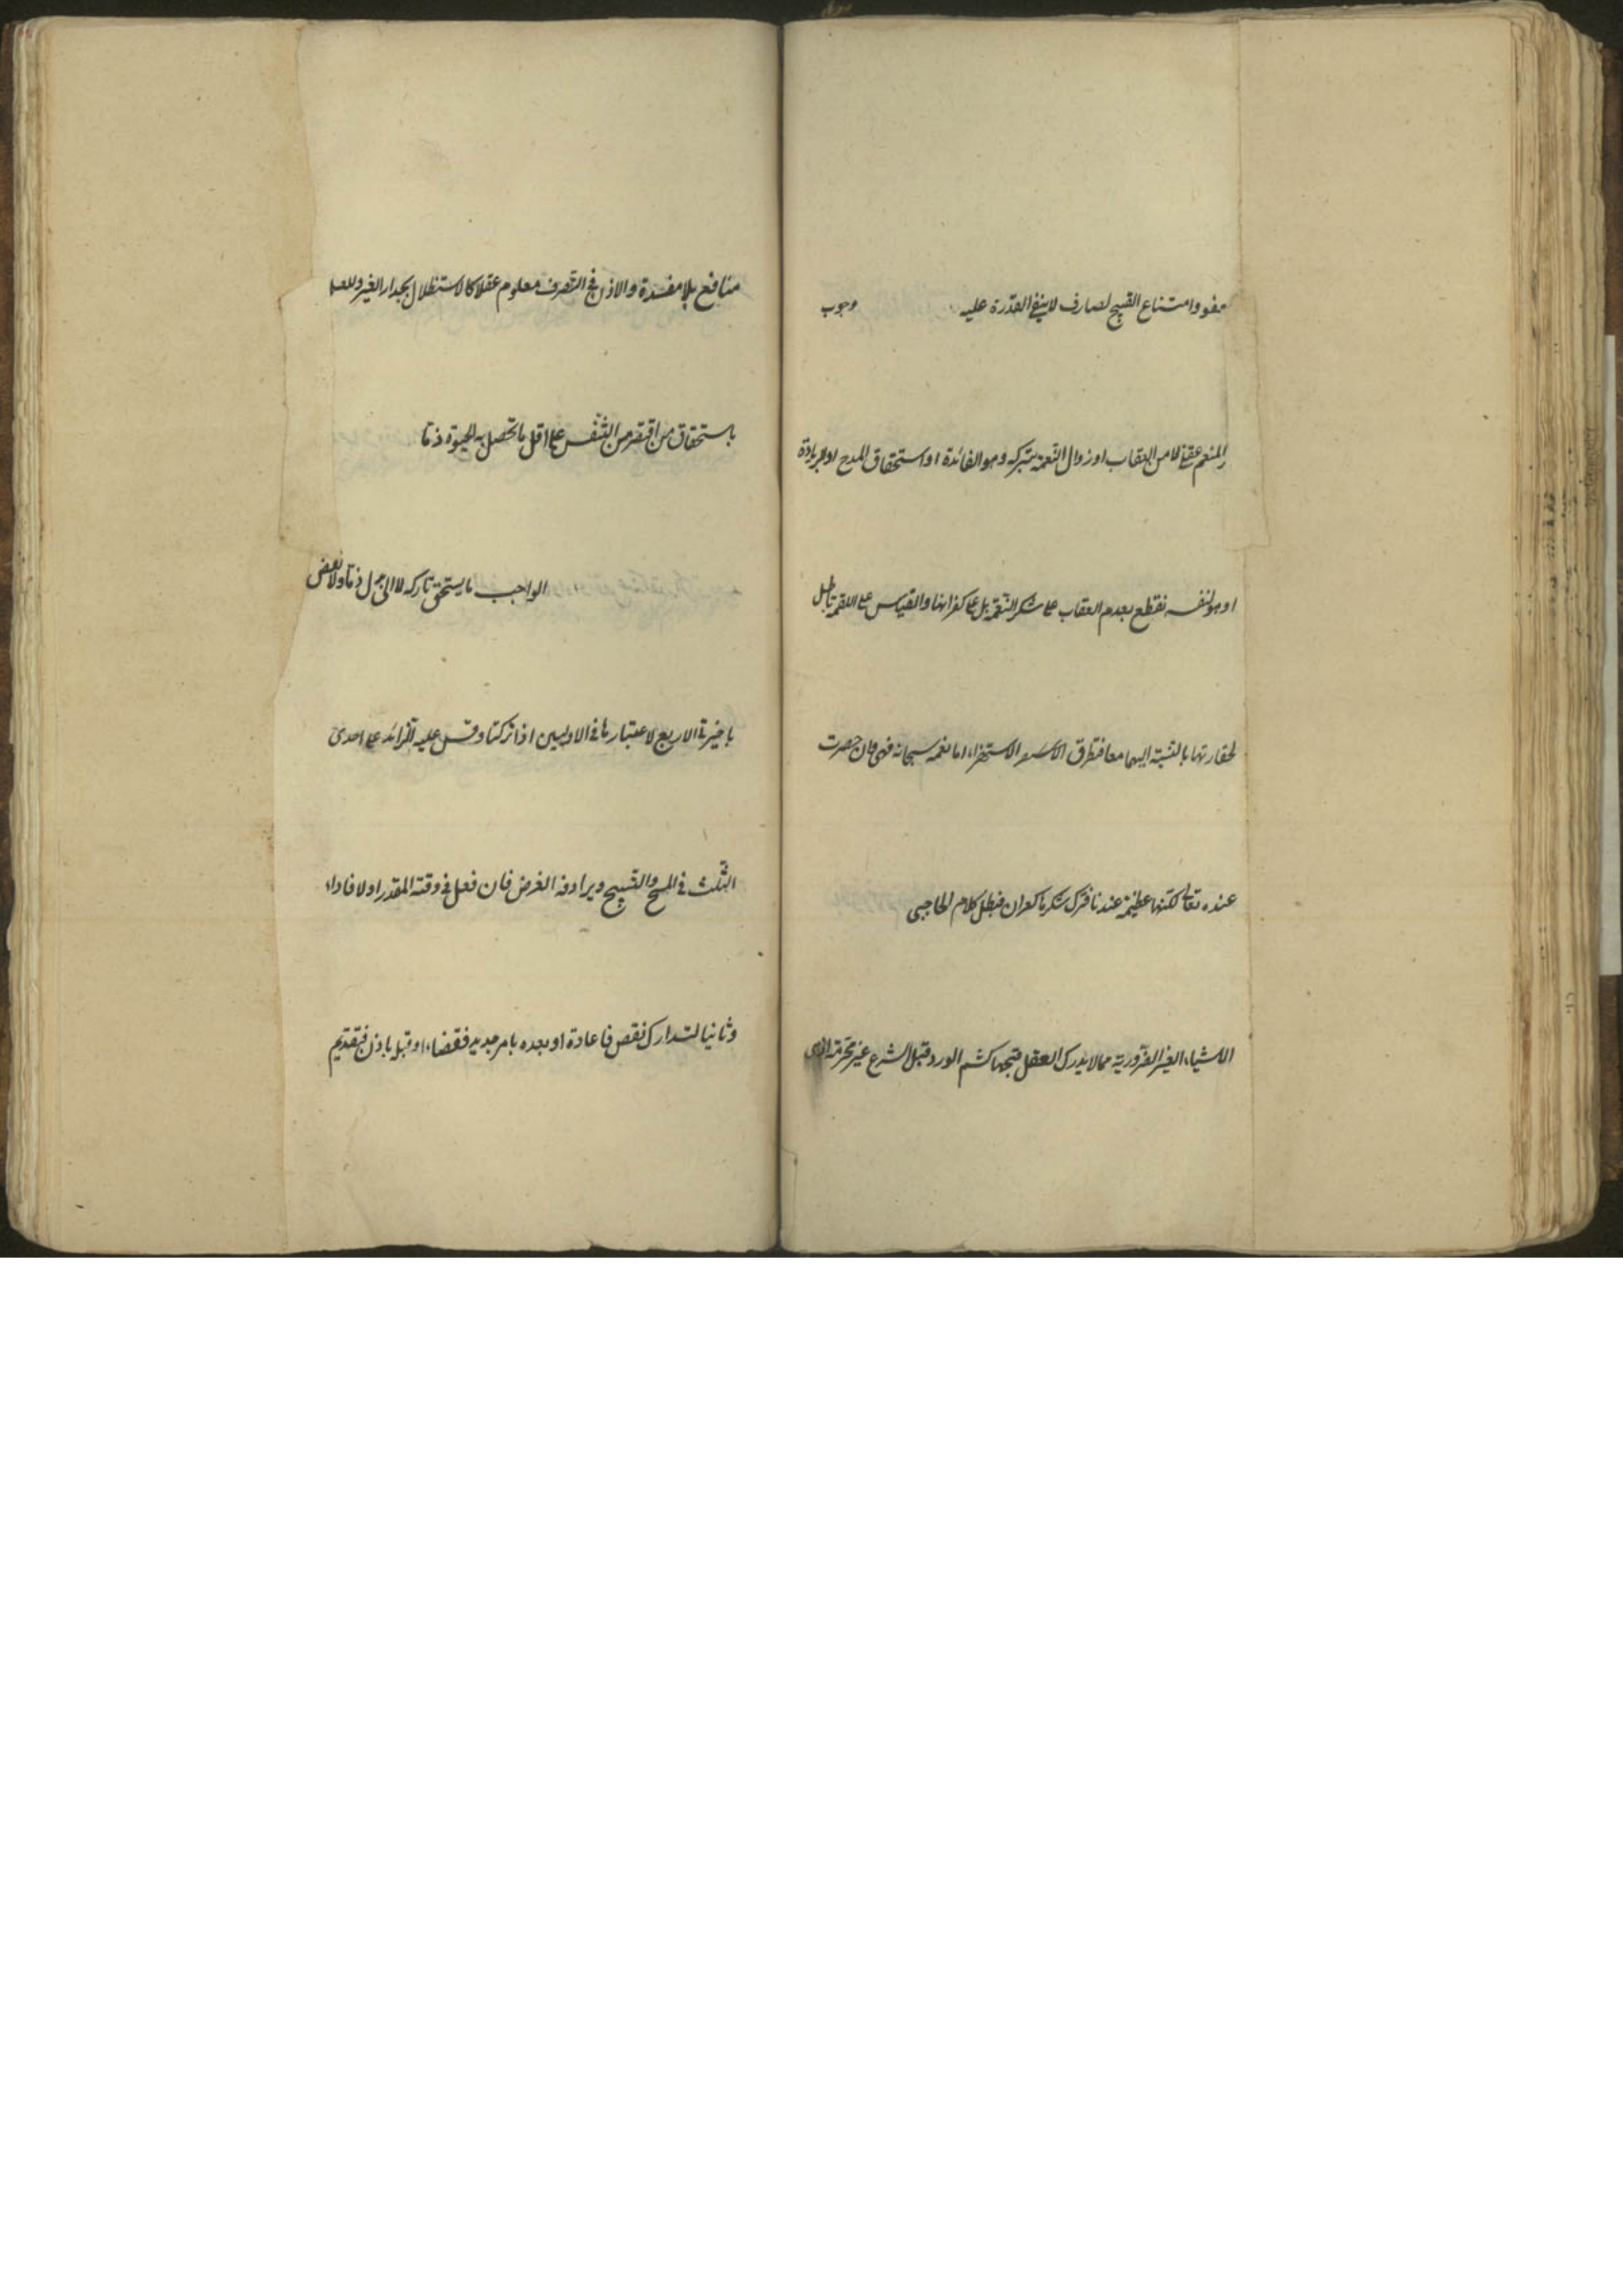 عفو وامتناع القبيح لصارف لا ينفى القدرة عليه وجوب
المنعم عقلا للامن العقاب او زوال النعمة بتركه وهو الفائدة او استحقاق المدح او الزيادة
او هو لنفسه نقطع بعدم العقاب على شكر النعمة بل على كفرانها والقياس على اللقمة باطل
لحقارتها بالنسبة اليهما معا فتطرق الاستهزاء اما نعمه سبحانه فهى وان حصرت
عنده تعالى لكنها عظيمة عندنا فترك شكرها كفران فبطل كلام الحاجبى
الاشياء الغير الضرورية مما لا يدرك العقل قبحها كشم الورد قبل الشرع غير محرمة
منافع بلا مفسدة والاذن فى التصرف معلوم عقلا كالاستظلال بجدار الغير وللعلم
باستحقاق من اقتصر من التنفس على اقل ما تحصل به الحيوة ذما
الواجب ما يستحق تاركه لا الى بدل ذما ولا نقض
باخيرة الاربع لاعتبارها فى الاوليين اذا تركتا وقس عليه الزائد على احدى
الثلث فى المسح والتسبيح ويرادفه الفرض فان فعل فى وقته المقدر اولا فاداء
وثانيا لتدارك نقص فاعادة او بعده بامر جديد فقضاء او قبله باذن فتقديم